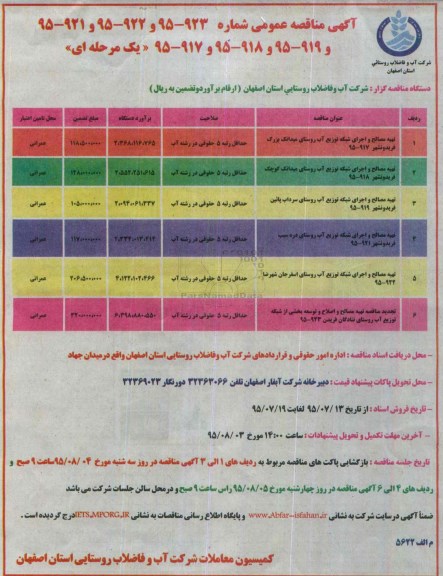 آگهی مناقصه عمومی شماره ۹۲۳-۹۵ و ۹۲۲-۹۵ و ۹۲۱-۹۵
و ۹۱۹-۹۵ و ۹۱۸-۹۵ و ۹۱۷-۹۵ « یک مرحله ای»
شرکت آب و فاضلاب روستائی
استان اصفهان
دستگاه مناقصه گزار : شرکت آب وفاضلاب روستایی استان اصفهان ( ارقام برآوردوتضمین به ریال )
ردیف عنوان مناقصه صلاحیت برآورد دستگاه مبلغ تضمین محل تامین اعتبار
۱ تهیه مصالح و اجرای شبکه توزیع آب روستای میدانک بزرگ فریدونشهر ۹۱۷-۹۵ حداقل رتبه ۵ حقوقی در رشته آب عمرانی
۲ تهیه مصالح و اجرای شبکه توزیع آب روستای میدانک کوچک فریدونشهر ۹۱۸-۹۵ حداقل رتبه ۵ حقوقی در رشته آب عمرانی
۳ تهیه مصالح و اجرای شبکه توزیع آب روستای سرداب پائین فریدونشهر ۹۱۹-۹۵ حداقل رتبه ۵ حقوقی در رشته آب ۲/۰۹۴/۰۶۱/۳۳۷ ۱۰۵/۰۰۰/۰۰۰ عمرانی
۴ تهیه مصالح و اجرای شبکه توزیع آب روستای دره سیب فریدونشهر ۹۲۱-۹۵ حداقل رتبه ۵ حقوقی در رشته آب عمرانی
۵ تهیه مصالح و اجرای شبکه توزیع آب روستای اسفرجان شهرضا ۹۲۲-۹۵ حداقل رتبه ۵ حقوقی در رشته آب ۴/۱۲۲/۱۰۲/۴۶۶ ۲۰۶/۵۰۰/۰۰۰ عمرانی
۶ تجدید مناقصه تهیه مصالح و اصلاح و توسعه بخشی از شبکه توزیع آب روستای نمادگان فریدن ۹۲۳-۹۵ حداقل رتبه ۵ حقوقی در رشته آب ۶/۴۹۸/۰۸۸۰/۵۵۰ ۳۲۰/۰۰۰/۰۰۰ عمرانی
- محل دریافت اسناد مناقصه : اداره امور حقوقی و قراردادهای شرکت آب وفاضلاب روستایی استان اصفهان واقع درمیدان جهاد
- محل تحویل پاکات پیشنهاد قیمت : دبیرخانه شرکت آبفار اصفهان تلفن ۳۲۳۶۳۰۶۶ دورنگار ۳۲۳۶۹۰۲۳
- تاریخ فروش اسناد : از تاریخ ۹۵/۰۷/۱۳ لغایت ۹۵/۰۷/۱۹
- آخرین مهلت تکمیل و تحویل پیشنهادات : ساعت ۱۴:۰۰ مورخ ۹۵/۰۸/۰۳
تاریخ جلسه مناقصه : بازگشایی پاکت های مناقصه مربوط به ردیف های ۱ الی ۳ آگهی مناقصه در روز سه شنبه مورخ ۹۵/۰۸/۰۴ساعت ۹ صبح و
ردیف های ۴ الی ۶ آگهی مناقصه در روز چهارشنبه مورخ ۹۵/۰۸/۰۵ راس ساعت ۹ صبح و درمحل سالن جلسات شرکت می باشد
ضمناً آگهی درسایت شرکت به نشانی www.Abfar-isfahan.ir و پایگاه اطلاع رسانی مناقصات به نشانی IETS.MPORG.IRدرج گردیده است .
م الف ۵۶۲۲
کمیسیون معاملات شرکت آب و فاضلاب روستایی استان اصفهان